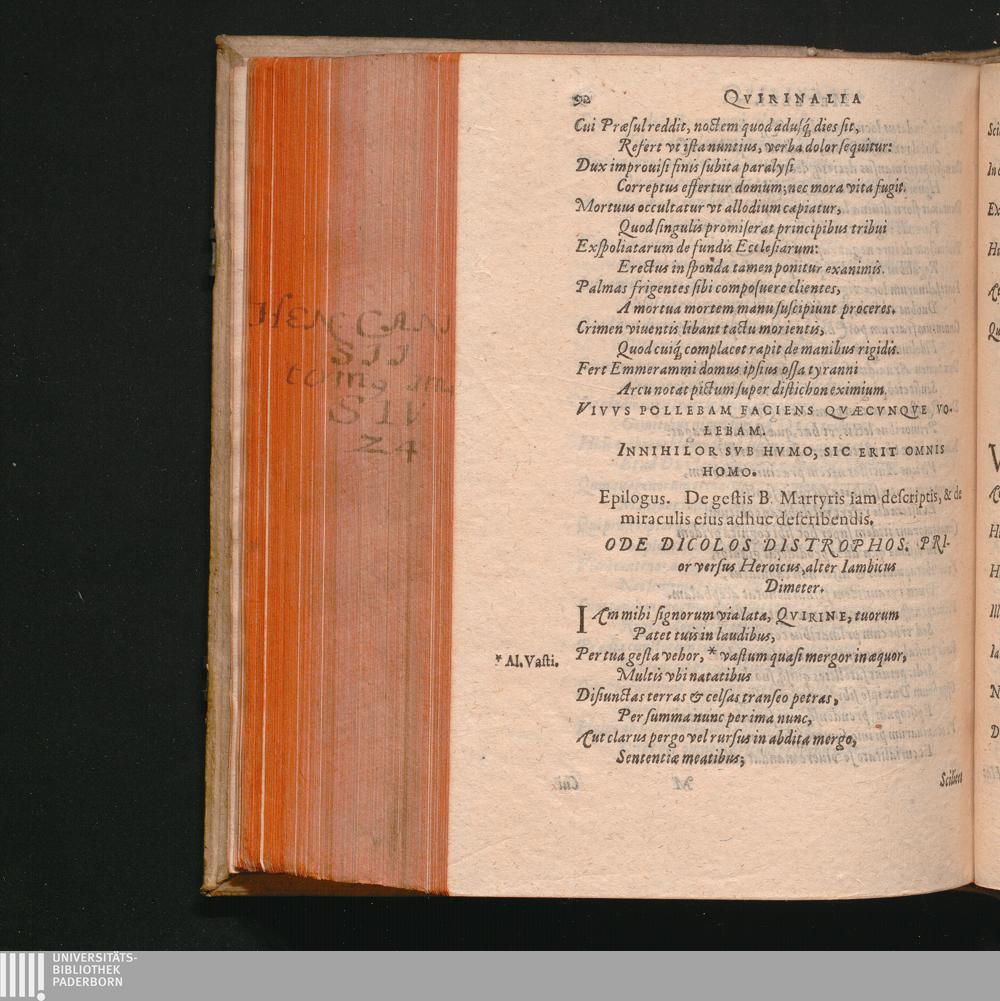 92 QVIRINALIA
Cui Præſul reddit, noctem quod aduſq́, dies ſit,
Refert vt iſta nuntius, verba dolor ſequitur:
Dux improuiſi finis ſubita paralyſi
Correptus effertur domum; nec mora vita fugit.
Mortuus occultatur vt allodium capiatur,
Quod ſingulis promiſerat principibus tribui
Exſpoliatarum de fundis Eccleſiarum:
Erectus in ſponda tamen ponitur exanimis.
Palmas frigentes ſibi compoſuere clientes,
A mortua mortem manu ſuſcipiunt proceres.
Crimen viuentis libant tactu morientis,
Quod cuiq́, complacet rapit de manibus rigidis.
Fert Emmerammi domus ipſius oſſa tyranni
Arcu notat pictum ſuper diſtichon eximium.
VIVVS POLLEBAM FACIENS QVÆCVNQVE VO-
LEBAM.
INNIHILOR SVB HVMO, SIC ERIT OMNIS
HOMO.
Epilogus. De geſtis B. Martyris iam deſcriptis, & de
miraculis eius adhuc deſcribendis.
ODE DICOLOS DISTROPHOS. PRI-
or verſus Heroicus, alter Iambicus
Dimeter.
IAm mihi ſignorum via lata, QVIRINE, tuorum
Patet tuis in laudibus,
Per tua geſta vehor, * vaſtum quaſi mergor in æquor,
* Al. Vaſti.
Multis vbi natatibus
Diſiunctas terras & celſas tranſeo petras,
Per ſumma nunc per ima nunc,
Aut clarus pergo vel rurſus in abdita mergo,
Sententiæ meatibus;
HEN CAN
SII
tom
SIV
24
UNIVERSITÄTS-
BIBLIOTHEK
PADERBORN